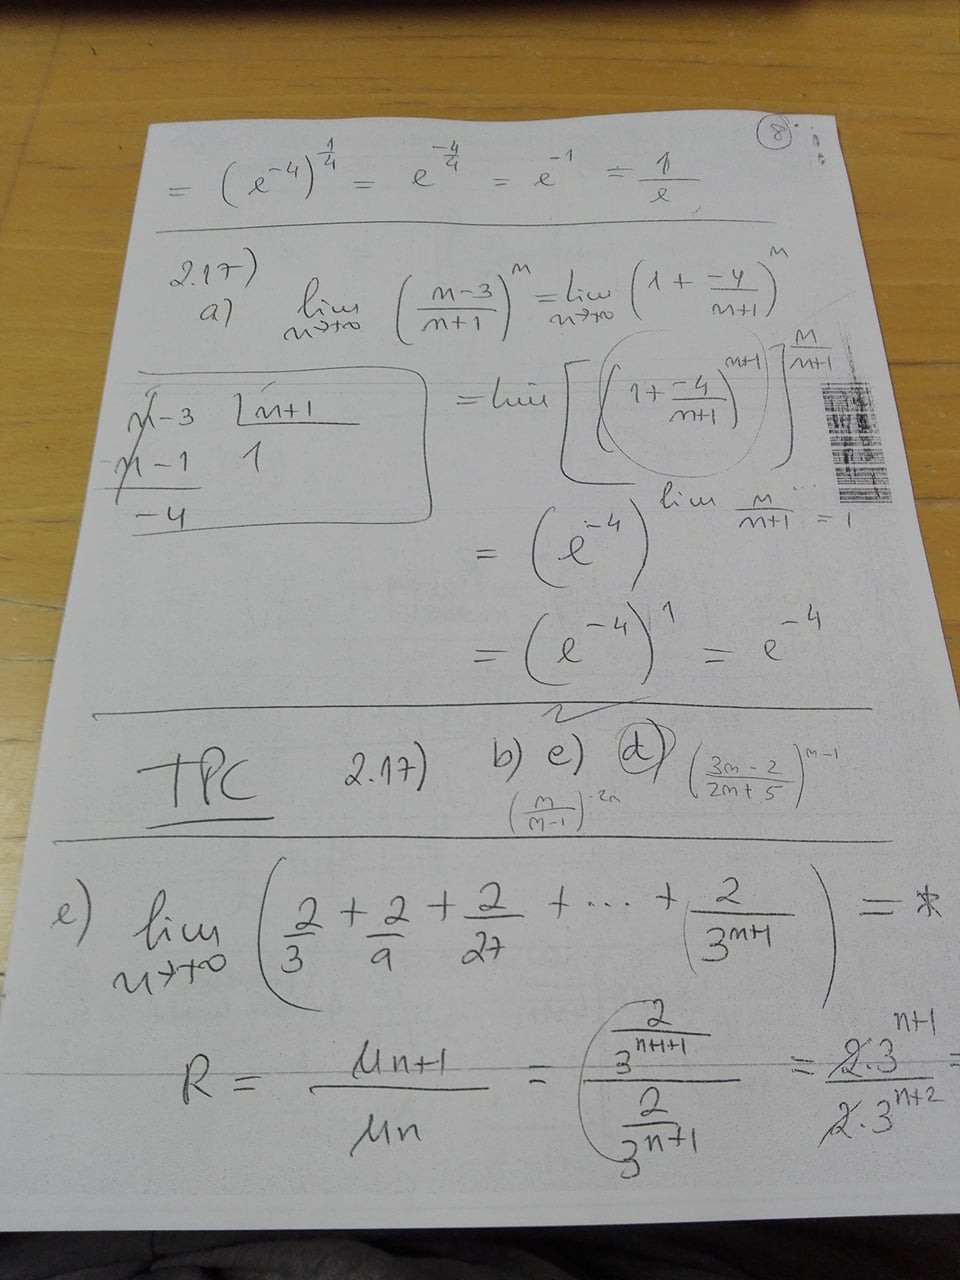 8
= (e^-4)^1/4 = e^-4/4 = e^-1 = 1/e
2.17)
a) lim n→+∞ ((n-3)/(n+1))^n = lim n→+∞ (1 + -4/(n+1))^n
= lim [(1 + -4/(n+1))^n+1]^n/(n+1)
n-3 | n+1
n-1 1
-4
= (e^-4)^lim n/(n+1) = 1
= (e^-4)^1 = e^-4
TPC 2.17) b) e) d) ((3n-2)/(2n+5))^n-1
(n/(n-1))^-2n
e) lim n→+∞ (2/3 + 2/9 + 2/27 + ... + 2/3^n+1) = *
R = μn+1/μn = (2/3^n+1+1)/(2/3^n+1) = 2.3^n+1/2.3^n+2 =